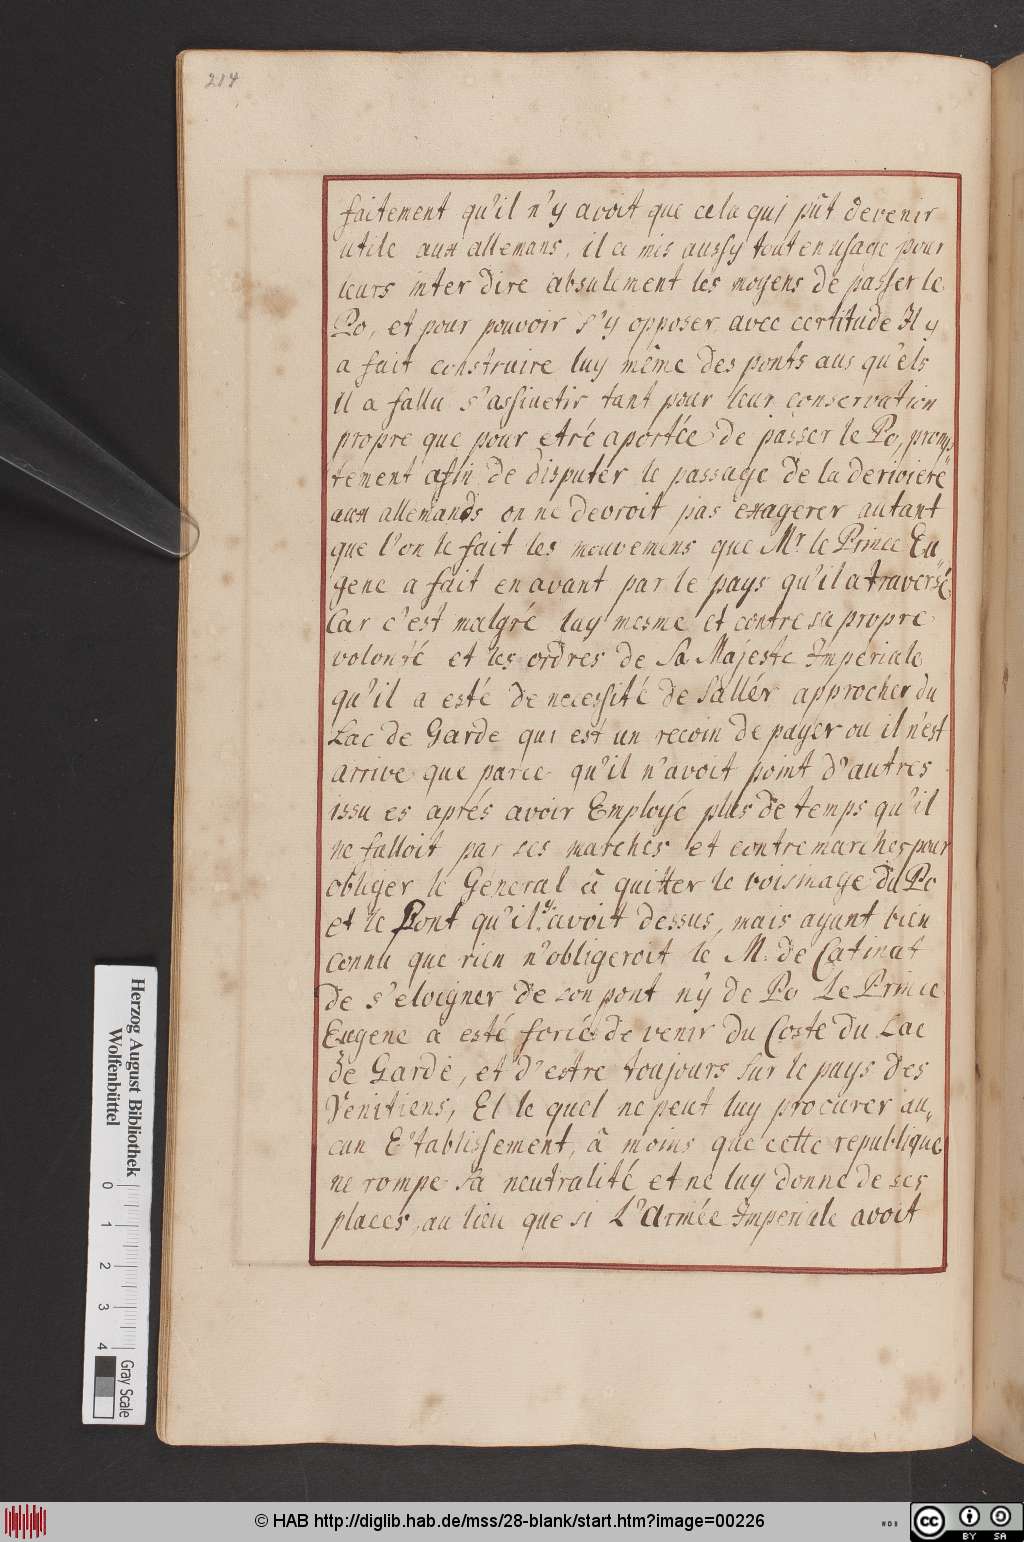 214
faitement qu'il n'y avoit que cela qui pût devenir
utile aux allemans, il a mis aussy tout en usage pour
leurs inter dire absulement les moyens de passer le
Po, et pour pouvoir s'y opposer avec certitude Il y
a fait construire luy même des ponts aus qu'els
Il a fallu s'assiuetir tant pour leur conservation
propre que pour etré aportée de passer le Po, promp„
tement afin de disputer le passage de la deriviere
aux allemands on ne devroit pas exagerer autant
que l'on le fait les mouvemens que Mr le Prince Eu„
gene a fait en avant par le pays qu'il a traversé
Car c'est malgré luy mesme et contre sa propre
volonté et les ordres de Sa Majeste Imperiale
qu'il a esté de necessité de s'allér approcher du
Lac de Garde qui est un recoin de payer ou il n'est
arrive que parce qu'il n'avoit point d'autres
issu es aprés avoir Employé plus de temps qu'il
ne falloit par ses marches et contre marches pour
obliger le Géneral â quitter le voisinage du Po
et le Pont qu'il y avoit dessus, mais ayant bien
connu que rien n'obligeroit le M. de Catinat
de s'eloigner de son pont n'y de Po Le Prince
Eugene a esté forcé de venir du Coste du Lac
de Garde, et d'estre toujours sur le pays des
Venitiens, Et le quel ne peut luy procurer au„
cun E'tablissement, â moins que cette republique
ne rompe sa neutralité et ne luy donne de ses
places, au lieu que si L'Armée Imperiale avoit
Herzog August Bibliothek
Wolfenbüttel
0 1 2 3 4
Gray Scale
© HAB http://diglib.hab.de/mss/28-blank/start.htm?image=00226
cc BY SA